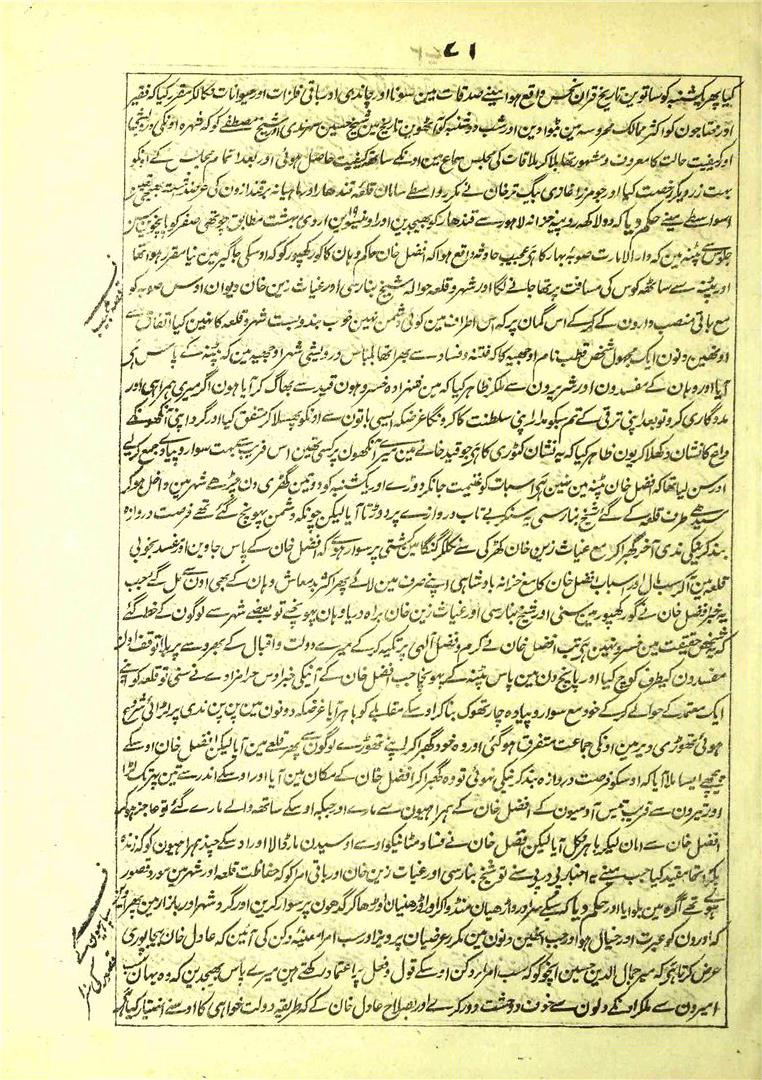 ۷۱
کیا پھر یکشنبہ کو ساتوین تاریخ قران نحس واقع ہوا مینے صدقات مین سونا اور چاندی اور باقی فلزات اور حیوانات نکالکر مقرر کیا کہ فقیر
اور محتاجون کو اکثر ممالک محروسہ مین بٹوا دین اور شب دوشنبہ کو آٹھوین تاریخ مین شیخ حسین سہرندی اور شیخ مصطفے کو کہ شہرہ اونکی درویشی کا
اور کیفیت حالت کا معروف و مشہور تھا بلا کر ملاقات کی مجلس سماع مین اونکے ساتھ کیفیت حاصل ہوئی اور بعد اتمام مجالس کے اونکو
بہت زر دیکر رخصت کیا اور جو مرزا غازی بیگ ترخان نے مکرر واسطے سامان قلعہ قندھار اور ماہیانہ برقندازون کی عرضداشت بھیجی تھی
اسواسطے مینے حکم دیا کہ دو لاکھ روپیہ خزانہ لاہور سے قندھار کو بھیجدین اور اونیسوین اردی بہشت مطابق چوتھی صفر کو پانچوین سن
جلوس سے پٹنہ مین کہ دار الامارت صوبہ بہار کا ہی عجیب حادثہ واقع ہوا کہ افضل خان حاکم وہان کا گورکھپور کو کہ اوسکی جاگیر مین نیا مقرر ہوا تھا
اور پٹنہ سے ساٹھ کوس کی مسافت پر تھا جانے لگا اور شہر و قلعہ حوالہ شیخ بنارسی اور غیاث زین خان دیوان اوس صوبہ کو
مع باقی منصب دارون کے کر کے اس گمان پر کہ اس اطراف مین کوئی دشمن نہین خوب بندوبست شہر و قلعہ کا نہین کیا اتفاق سے
اونھین دنون ایک مجہول شخص قطب نام اوچھیہ کا کہ فتنہ و فساد سے بھرا تھا بلباس درویشی شہر اوجھیہ مین کہ پٹنہ کے پاس ہی
آیا اور وہان کے مفسدون اور شریرون سے ملکر ظاہر کیا کہ مین شہزادہ خسرو ہون قید سے بھاگ کر آیا ہون اگر میری ہمراہی اور
مددگاری کرو تو بعد اپنی ترقی کے تم سبکو مدار اپنی سلطنت کا کرونگا غرضکہ ایسی باتون سے اونکو پھسلا کر متفق کیا اور گرد اپنی آنکھونکے
داغ کا نشان دکھلا کر یون ظاہر کیا کہ یہ نشان کٹوری کا ہی جو قید خانے مین میری آنکھون پر کسی تھین اس فریب سے بہت سوار و پیادے جمع کر لیے
اور سن لیا تھا کہ افضل خان پٹنہ مین نہین ہی اسبات کو غنیمت جانکر دوڑے اور یکشنبہ کو دو تین گھڑی دن چڑھے شہر مین داخل ہو کر
سیدھے طرف قلعہ کے گئے شیخ بنارسی یہ سنکر بے تاب دروازے پر دوڑتا آیا لیکن چونکہ دشمن پہونچ گئے تھے فرصت دروازہ
بند کرنیکی ندی آخر گھبرا کر مع غیاث زین خان کھڑکی سے نکلکر گنگا مین کشتی پر سوار ہوے کہ افضل خان کے پاس جاوین اور مفسد بخوبی
قلعہ مین آکر سب مال اور اسباب افضل خان کا مع خزانہ بادشاہی اپنے صرف مین لائے پھر اکثر بدمعاش وہان کے بھی اون سے مل گئے جب
یہ خبر افضل خان نے گورکھپور مین سنی اور شیخ بنارسی اور غیاث زین خان براہ دریا وہان پہونچے تو بعضے شہر سے لوگون کے خط آئے
کہ یہ شخص حقیقت مین خسرو نہین ہی تب افضل خان نے کرم و فضل الٰہی پر تکیہ کر کے میرے دولت و اقبال کے بھروسے پر بلا توقف اون
مفسدون کیطرف کوچ کیا اور پانچ دن مین پاس پٹنہ کے پہونچا جب افضل خان کے آنیکی خبر اوس حرامزادے نے سنی تو قلعہ کو اپنے
ایک معتمد کے حوالے کر کے خود مع سوار و پیادہ چار توپک بنا کر اوسکے مقابلے کو باہر آیا غرضکہ دونون مین پن پن ندی پر لڑائی شروع
ہوئی تھوڑی دیر مین اونکی جماعت متفرق ہو گئی اور وہ خود گھبرا کر اپنے تھوڑے لوگون سے پھر قلعے مین آیا لیکن افضل خان اوسکے
پیچھے ایسا ملا آیا کہ اوسکو فرصت دروازہ بند کرنیکی نہوئی تو وہ گھبرا کر افضل خان کے مکان مین آیا اور اوسکے اندر سے تین پہر تک لڑا
اور تیرون سے قریب تیس آدمیون کے افضل خان کے ہمراہیون سے مارے اور جبکہ اوسکے ساتھ والے مارے گئے تو عاجز ہو کر
افضل خان سے امان لیکر باہر نکل آیا لیکن افضل خان نے فساد مٹانیکو اوسے اوسیدن مار ڈالا اور اوسکے چند ہمراہیون کو کہ زندہ
پکڑا تھا مقید کیا جب مینے یہ اخبار پے در پے سنے تو شیخ بنارسی اور غیاث زین خان اور باقی امرا کو کہ حفاظت قلعہ اور شہر مین مورد قصور
ہوے تھے آگرہ مین بلوایا اور حکم دیا کہ سبکے سر اور داڑھیان منڈوا کر اور اوڑھنیان اوڑھا کر گدھون پر سوار کرین اور گرد شہر اور بازار مین پھراوین
کہ اورون کو عبرت اور خیال ہو اور جب انھین دنون مین مکرر عرضیان پرویز اور سب امرا متعینہ دکن کی آئین کہ عادل خان بیجاپوری
عرض کرتا ہی کہ میر جمال الدین حسین انجو کو کہ سب امرا دکن اوسکے قول و فعل پر اعتماد رکھتے ہین میرے پاس بھیجدین کہ وہ یہان سب
امیرون سے ملکر اونکے دلون سے خوف و دہشت دور کرے اور بصلاح عادل خان کے کہ طریقہ دولت خواہی کا اوسنے اختیار کیا ہے